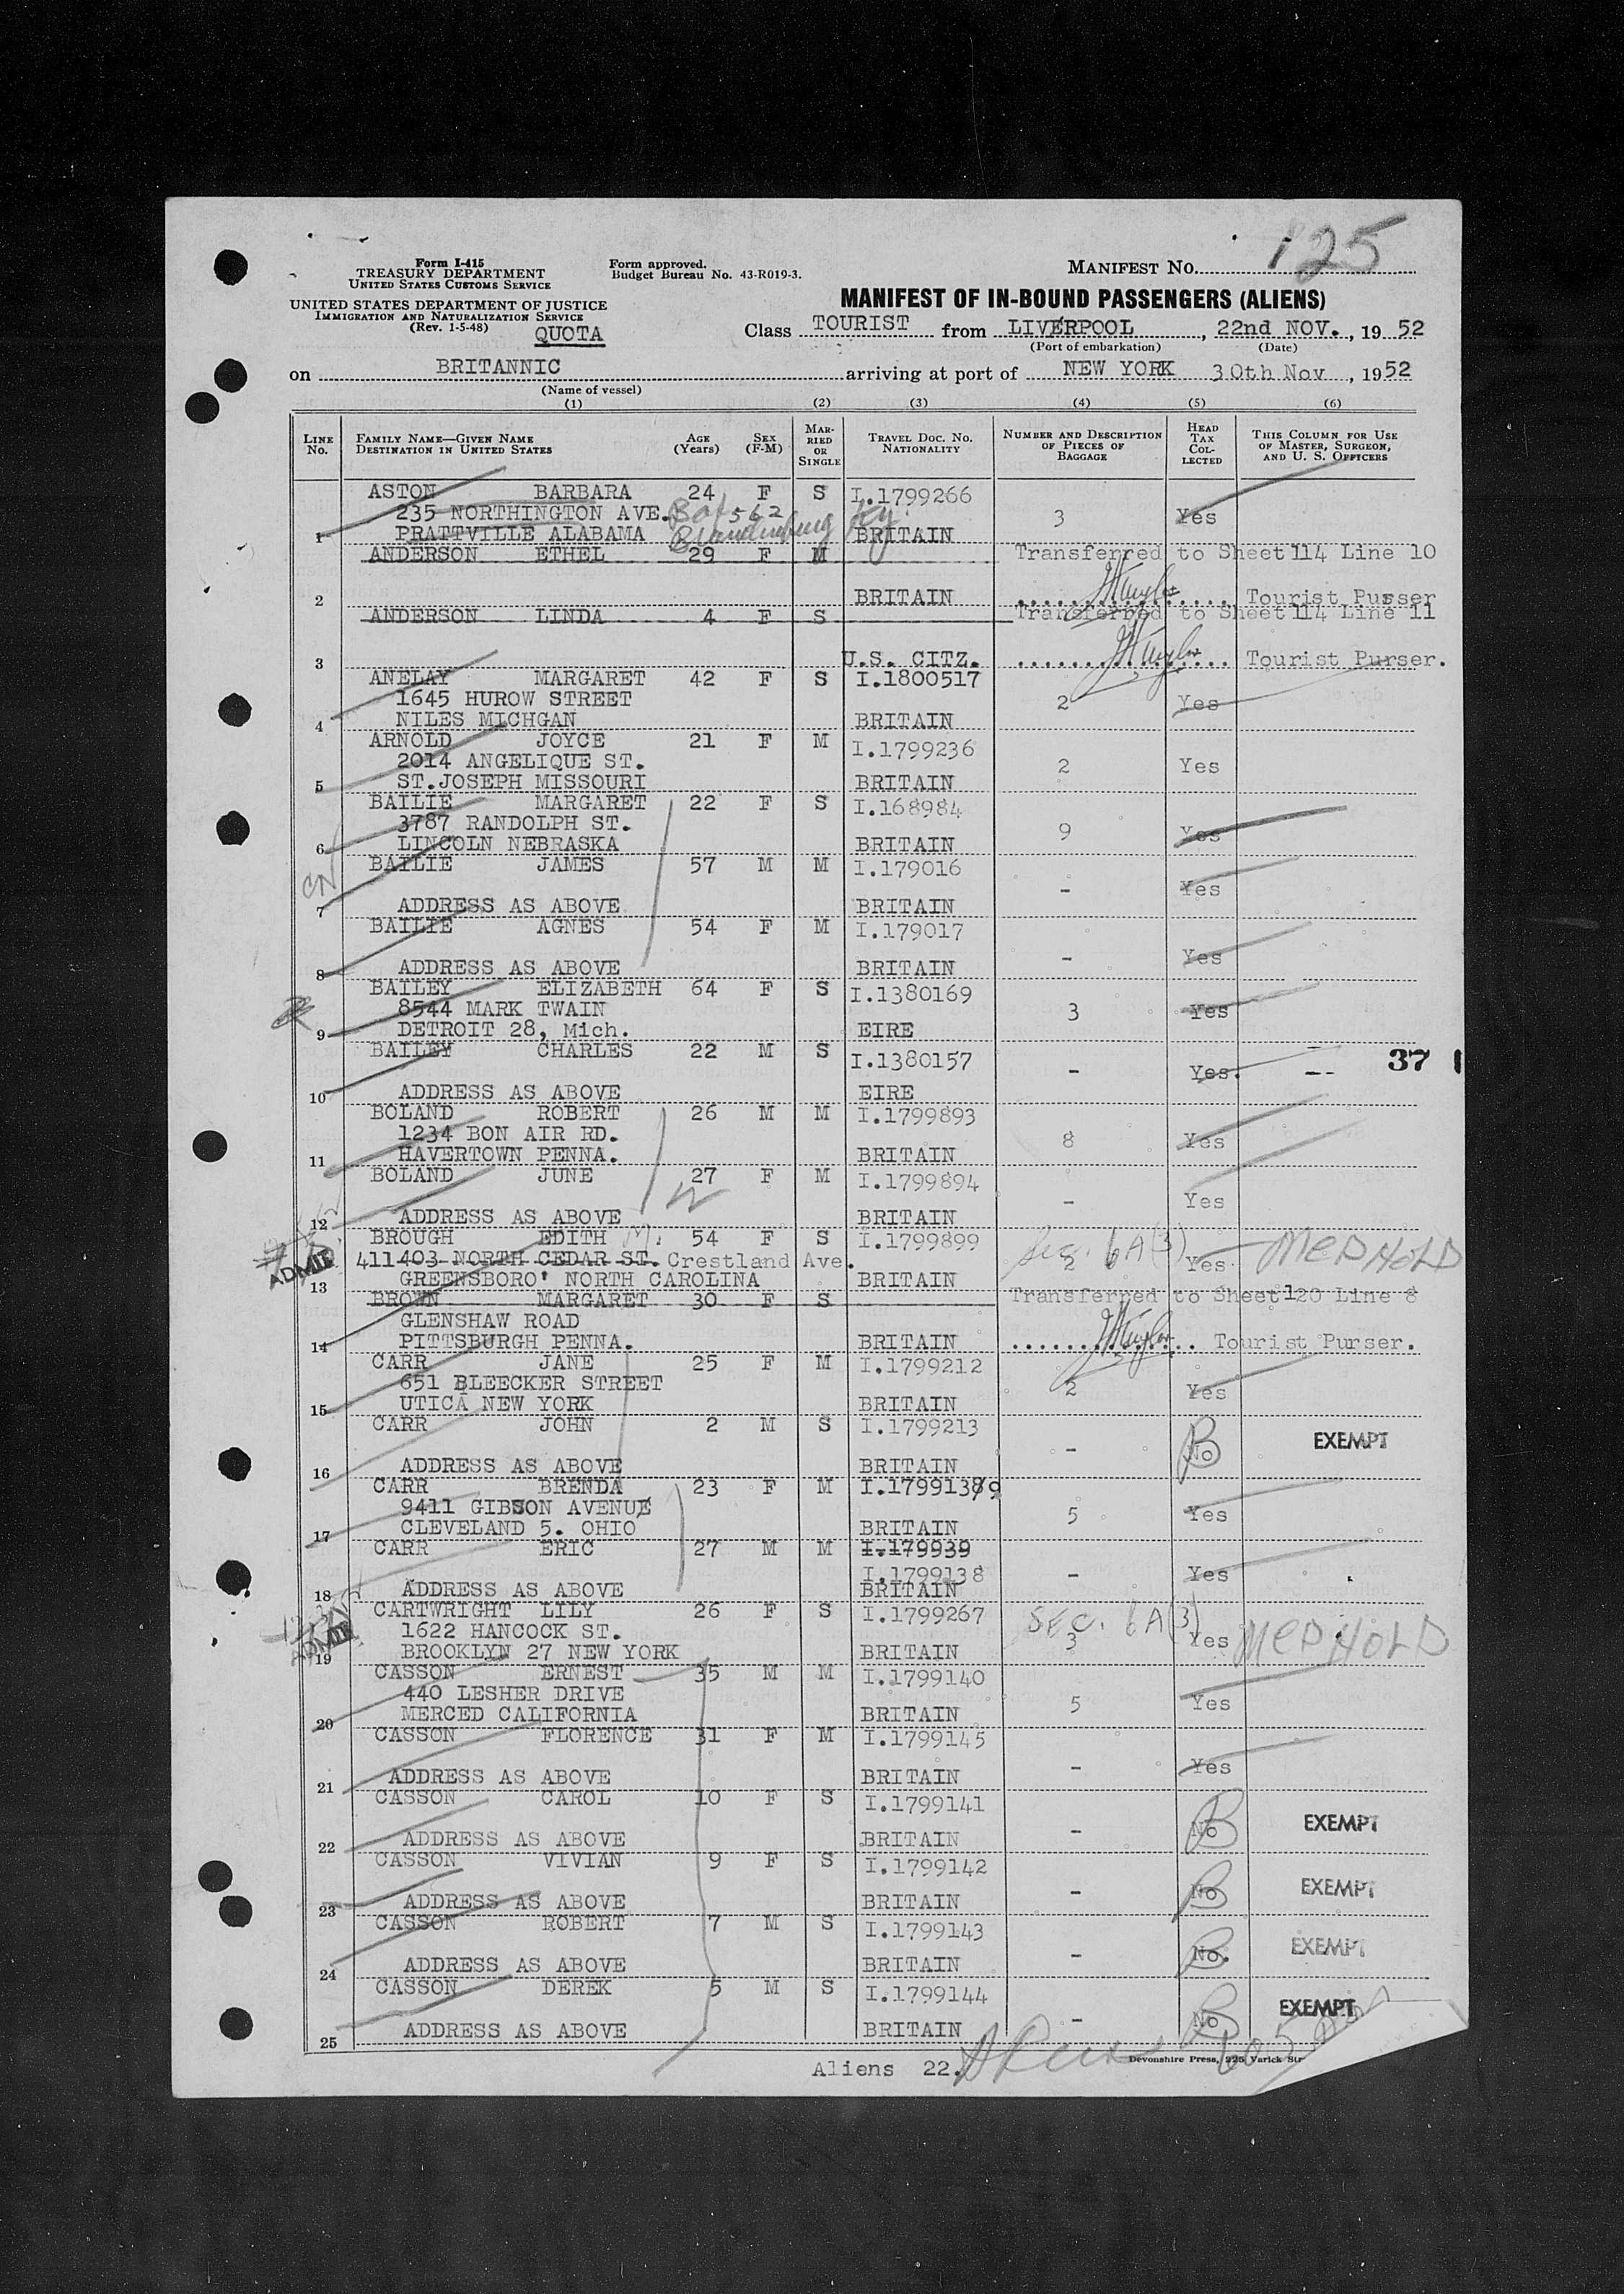 125
Form I-415
TREASURY DEPARTMENT
UNITED STATES CUSTOMS SERVICE
UNITED STATES DEPARTMENT OF JUSTICE
IMMIGRATION AND NATURALIZATION SERVICE
(Rev. 1-5-48)
QUOTA
Form approved.
Budget Bureau No. 43-R019-3.
MANIFEST NO.
MANIFEST OF IN-BOUND PASSENGERS (ALIENS)
Class TOURIST from LIVERPOOL, 22nd NOV., 1952
(Port of embarkation) (Date)
on BRITANNIC arriving at port of NEW YORK 30th Nov, 1952
(Name of vessel)
(1) (2) (3) (4) (5) (6)
LINE No. FAMILY NAME—GIVEN NAME DESTINATION IN UNITED STATES AGE (Years) SEX (F-M) MARRIED OR SINGLE TRAVEL DOC. NO. NATIONALITY NUMBER AND DESCRIPTION OF PIECES OF BAGGAGE HEAD TAX COLLECTED THIS COLUMN FOR USE OF MASTER, SURGEON, AND U. S. OFFICERS
ASTON BARBARA 24 F S I.1799266
235 NORTHINGTON AVE. Box 562 3 Yes
1 PRATTVILLE ALABAMA Brandenburg Ky. BRITAIN
ANDERSON ETHEL 29 F M Transferred to Sheet 114 Line 10
2 BRITAIN Tourist Purser
ANDERSON LINDA 4 F S Transferred to Sheet 114 Line 11
3 U.S. CITZ. Tourist Purser.
ANELAY MARGARET 42 F S I.1800517
1645 HUROW STREET 2 Yes
4 NILES MICHGAN BRITAIN
ARNOLD JOYCE 21 F M I.1799236
2014 ANGELIQUE ST. 2 Yes
5 ST.JOSEPH MISSOURI BRITAIN
BAILIE MARGARET 22 F S I.168984
3787 RANDOLPH ST. 9 Yes
6 LINCOLN NEBRASKA BRITAIN
BAILIE JAMES 57 M M I.179016
- Yes
7 ADDRESS AS ABOVE BRITAIN
BAILIE AGNES 54 F M I.179017
- Yes
8 ADDRESS AS ABOVE BRITAIN
BAILEY ELIZABETH 64 F S I.1380169
8544 MARK TWAIN 3 Yes
9 DETROIT 28, Mich. EIRE
BAILEY CHARLES 22 M S I.1380157
- Yes. -- 37
10 ADDRESS AS ABOVE EIRE
BOLAND ROBERT 26 M M I.1799893
1234 BON AIR RD. 8 Yes
11 HAVERTOWN PENNA. BRITAIN
BOLAND JUNE 27 F M I.1799894
- Yes
12 ADDRESS AS ABOVE BRITAIN
BROUGH EDITH M. 54 F S I.1799899 Sec. 6A(3) MED HOLD
ADMIT 411 403 NORTH CEDAR ST. Crestland Ave. 2 Yes
13 GREENSBORO' NORTH CAROLINA BRITAIN
BROWN MARGARET 30 F S Transferred to Sheet 120 Line 8
GLENSHAW ROAD
14 PITTSBURGH PENNA. BRITAIN Tourist Purser.
CARR JANE 25 F M I.1799212
651 BLEECKER STREET 2 Yes
15 UTICA NEW YORK BRITAIN
CARR JOHN 2 M S I.1799213
- No EXEMPT
16 ADDRESS AS ABOVE BRITAIN
CARR BRENDA 23 F M I.17991389
9411 GIBSON AVENUE 5 Yes
17 CLEVELAND 5. OHIO BRITAIN
CARR ERIC 27 M M I.179939
I.1799138 - Yes
18 ADDRESS AS ABOVE BRITAIN
CARTWRIGHT LILY 26 F S I.1799267 SEC. 6A(3)
ADMIT 1622 HANCOCK ST. 3 Yes MED HOLD
19 BROOKLYN 27 NEW YORK BRITAIN
CASSON ERNEST 35 M M I.1799140
440 LESHER DRIVE 5 Yes
20 MERCED CALIFORNIA BRITAIN
CASSON FLORENCE 31 F M I.1799145
- Yes
21 ADDRESS AS ABOVE BRITAIN
CASSON CAROL 10 F S I.1799141
- No EXEMPT
22 ADDRESS AS ABOVE BRITAIN
CASSON VIVIAN 9 F S I.1799142
- No EXEMPT
23 ADDRESS AS ABOVE BRITAIN
CASSON ROBERT 7 M S I.1799143
- No. EXEMPT
24 ADDRESS AS ABOVE BRITAIN
CASSON DEREK 5 M S I.1799144
- No EXEMPT
25 ADDRESS AS ABOVE BRITAIN
Aliens 22.
Devonshire Press, 225 Varick Str